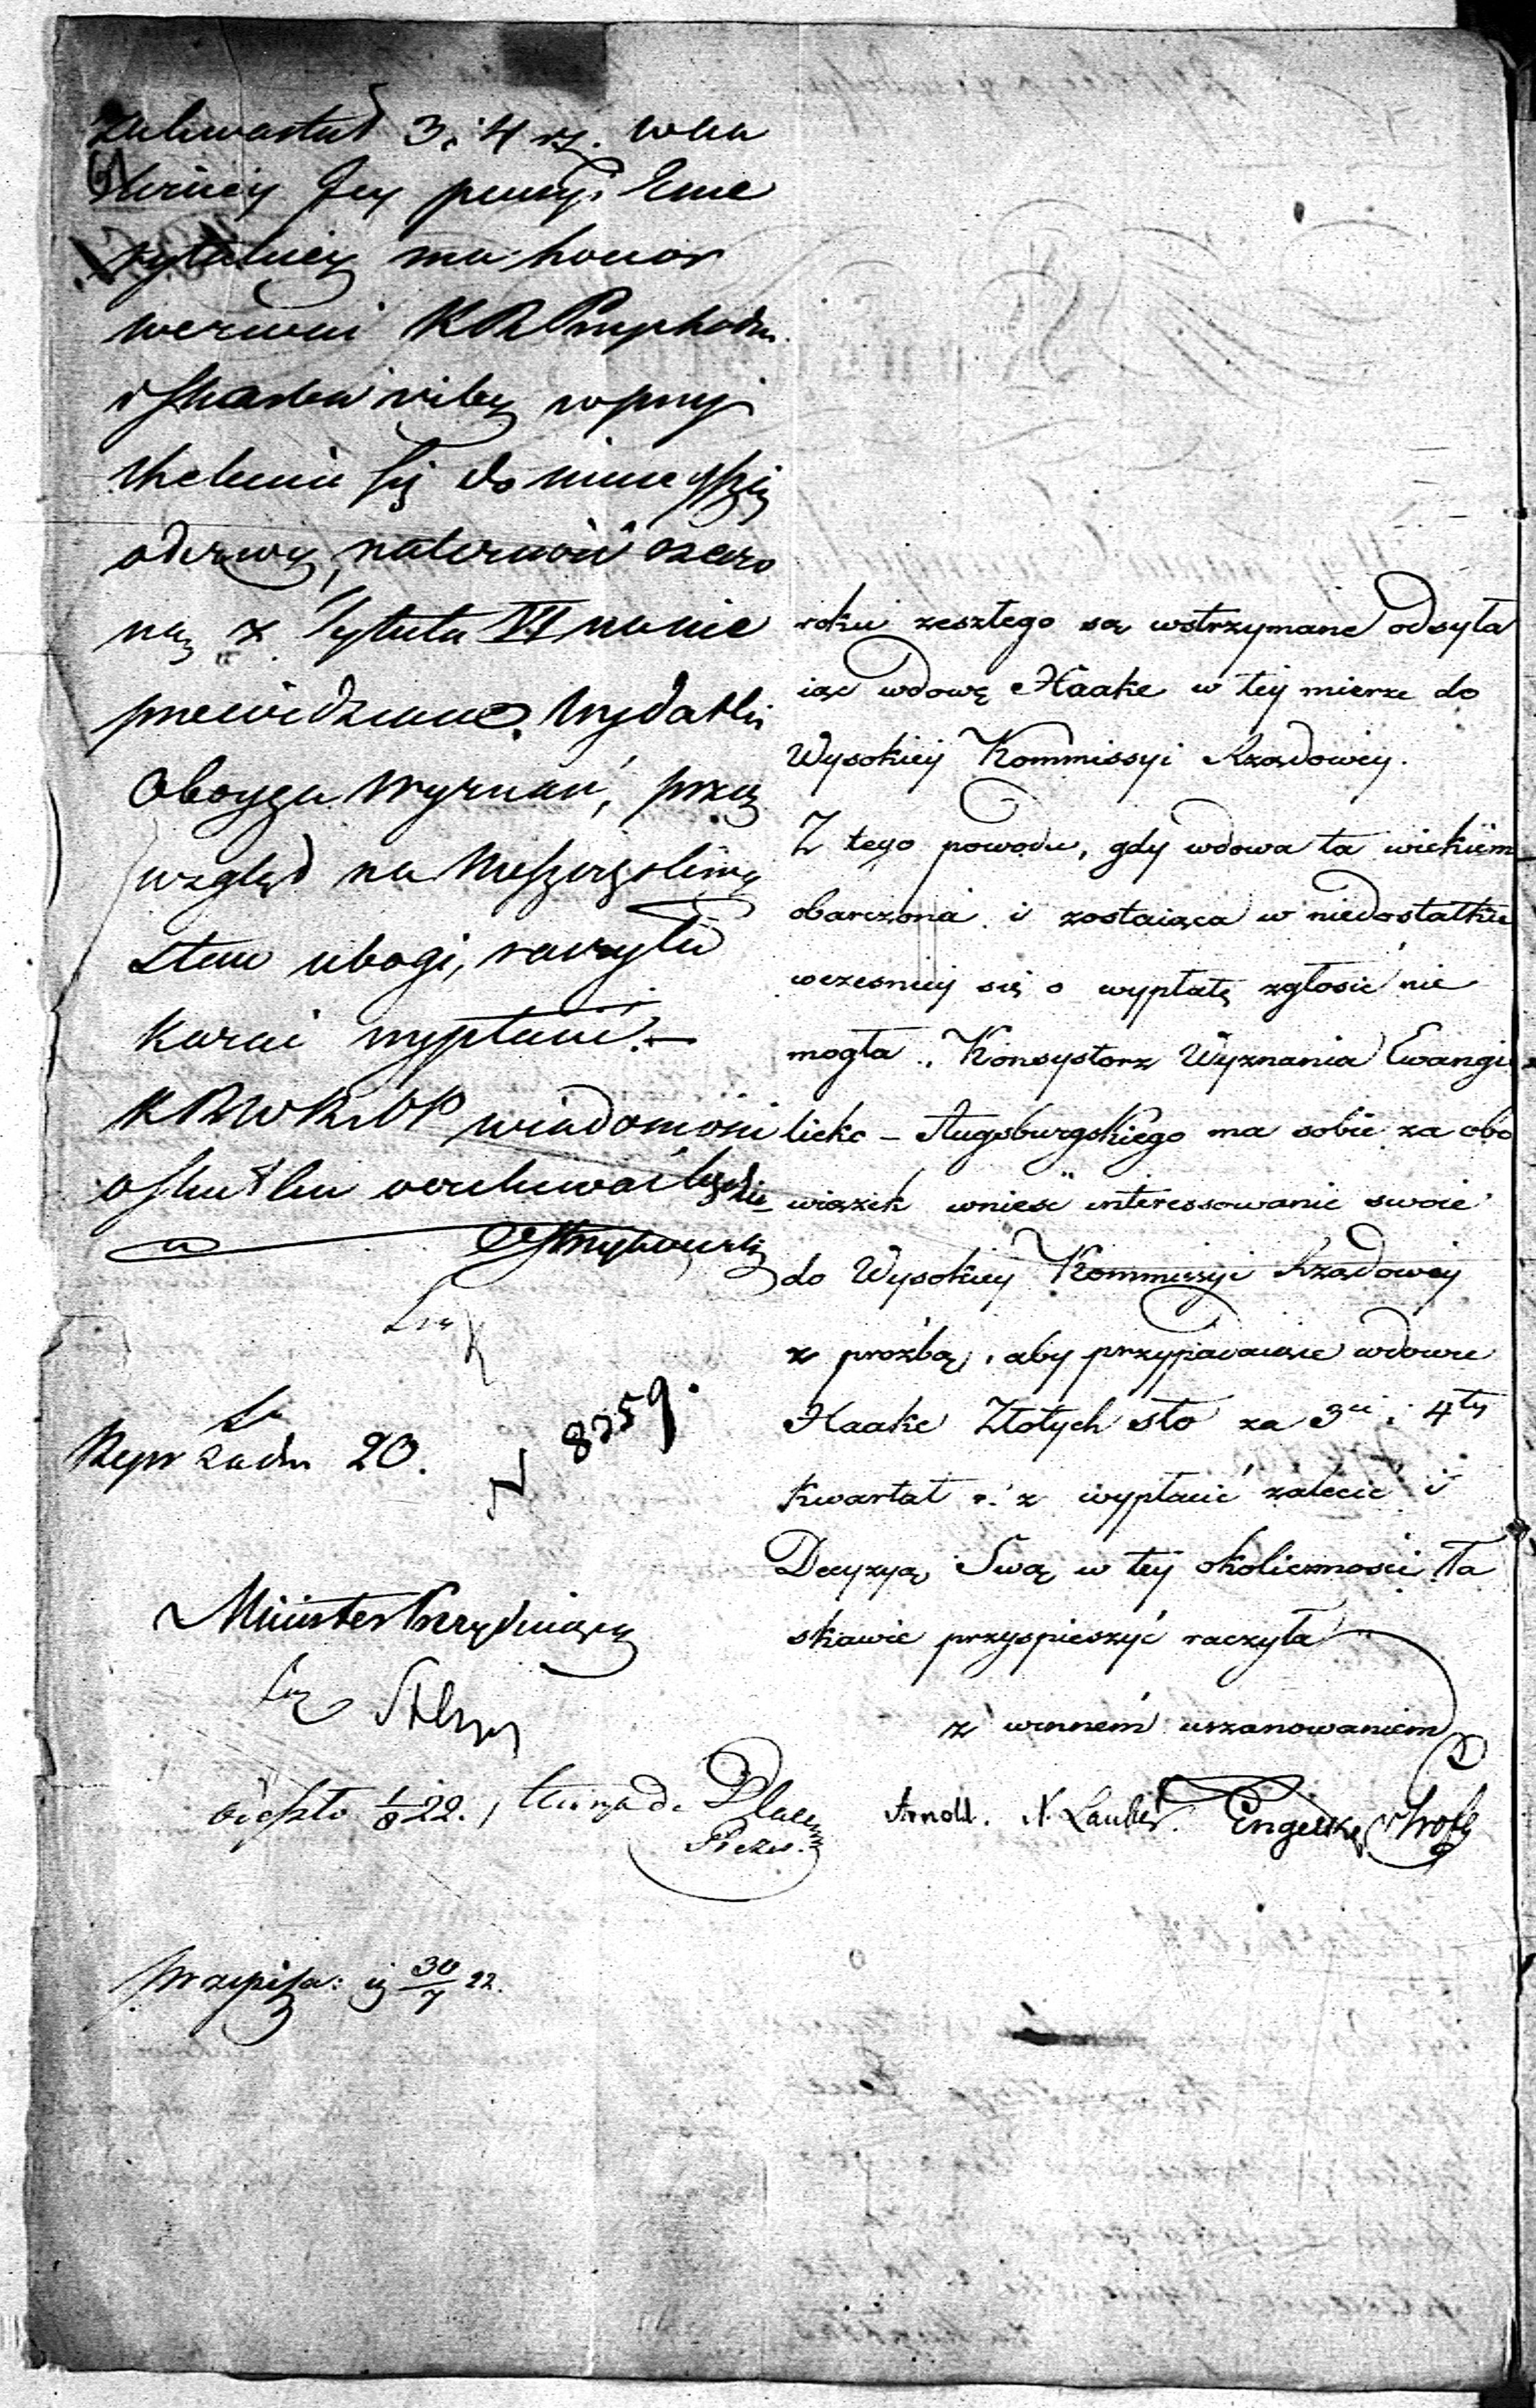 za kwartał 3 i 4 rz. wca
łkiey Jey pensyi Eme
rytalney ma honor
wezwać KRPrzychodu
i Skarbu ażeby w przy
chyleniu się do ninieyszey
odezwy, należność rzeczo
ną z Tytułu VI na nie
przewidziane Wydatki
Oboyga Wyznań, przez
wzgląd na
Stan ubogi, raczyła
kazać wypłacić. —
KRWRiOP wiadomości
o skutku oczekiwać będzie
Rep zadn 20.
N 8259.
Minister Prezyduiący
wyszło 1/8 22.
przepisa: 30/7 22.
roku zeszłego są wstrzymane odsyła
iąc wdowę Haake w tey mierze do
Wysokiey Kommissyi Rządowey.
Z tego powodu, gdy wdowa ta wiekiem
obarczona i zostaiąca w niedostatku
wcześniey się o wypłatę zgłosić nie
mogła, Konsystorz Wyznania Ewangie
licko - Augsburgskiego ma sobie za obo
wiązek wnieść interessowanie swoie
do Wysokiey Kommissyi Rządowey
z prożbą, aby przypadaiące wdowie
Haake Złotych sto za 3ci i 4ty
kwartał r. z wypłacić zalecić i
Decyzyą Swą w tey okoliczności ła
skawie przyspieszyć raczyła
z winném uszanowaniem
Arnold. Lauber.